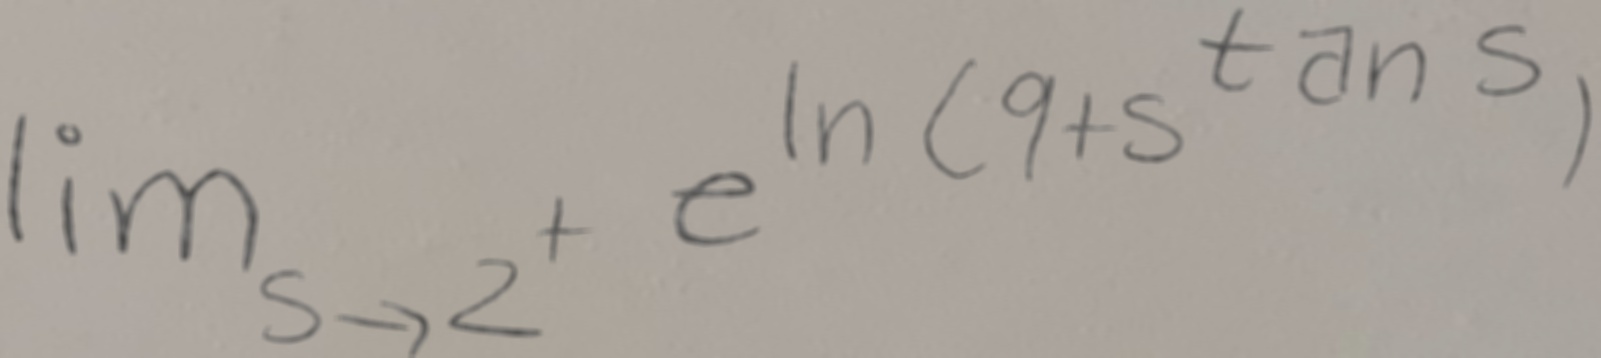 \lim_{s \to 2^+} e^{\ln(9+s^{\tan s})}